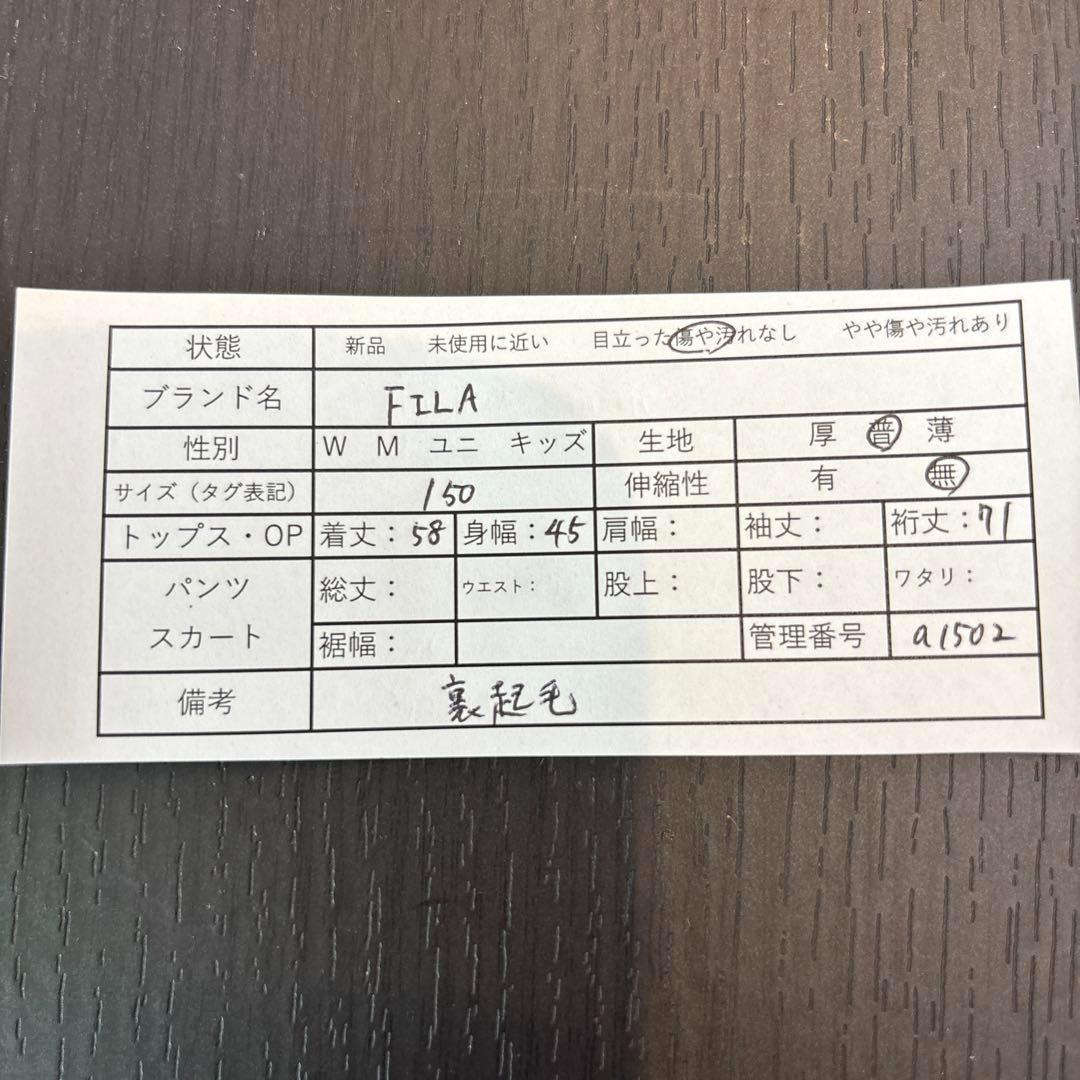 状態 新品 未使用に近い 目立った傷や汚れなし やや傷や汚れあり
ブランド名 FILA
性別 W M ユニ キッズ 生地 厚 普 薄
サイズ（タグ表記） 150 伸縮性 有 無
トップス・OP 着丈：58 身幅：45 肩幅： 袖丈： 裄丈：71
パンツ 総丈： ウエスト： 股上： 股下： ワタリ：
スカート 裾幅： 管理番号 a1502
備考 裏起毛